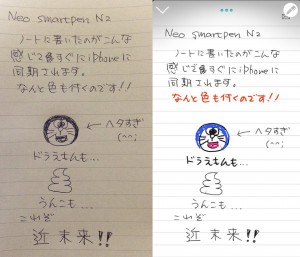 Neo smartpen N2
ノートに書いたのがこんな
感じですぐにiPhoneに
同期されます。
なんと色も付くのです!!
←ヘタすぎ
(^^;
ドラえもんも...
うんこも...
これぞ
近未来!!
Neo smartpen N2
ノートに書いたのがこんな
感じですぐにiPhoneに
同期されます。
なんと色も付くのです!!
←ヘタすぎ
(^^;
ドラえもんも...
うんこも...
これぞ
近未来!!